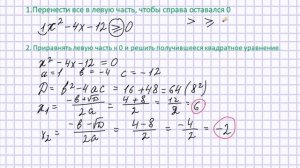 1.Перенести все в левую часть, чтобы справа оставался 0
1x² - 4x - 12 ≥ 0 > ≥
2. Приравнять левую часть к 0 и решить получившееся квадратное уравнение.
x² - 4x - 12 = 0
a = 1 b = -4 c = -12
D = b² - 4ac = 16 + 48 = 64 (8²)
x₁ = (-b+√D)/2a = (4+8)/2 = 12/2 = 6
x₂ = (-b-√D)/2a = (4-8)/2 = -4/2 = -2